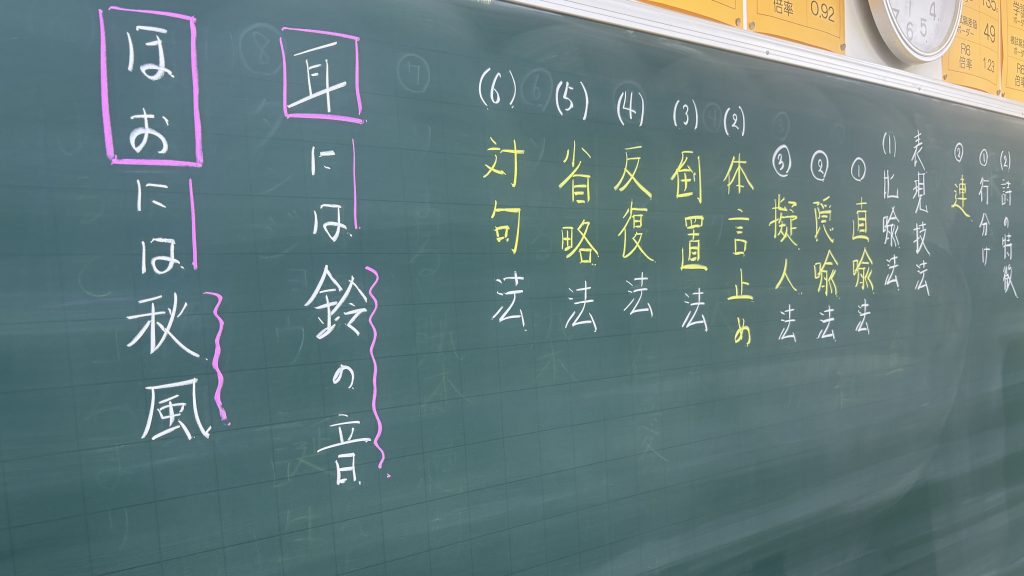 (2) 詩の特徴
① 行分け
② 連
表現技法
(1) 比喩法
① 直喩法
② 隠喩法
③ 擬人法
(2) 体言止め
(3) 倒置法
(4) 反復法
(5) 省略法
(6) 対句法
耳には鈴の音
ほおには秋風
倍率 0.92
49
倍率